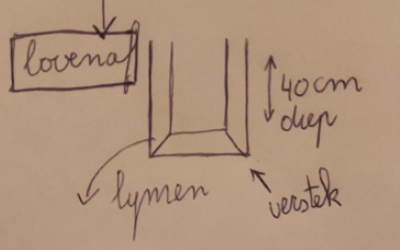 bovenaf
40cm
diep
lymen
verstek